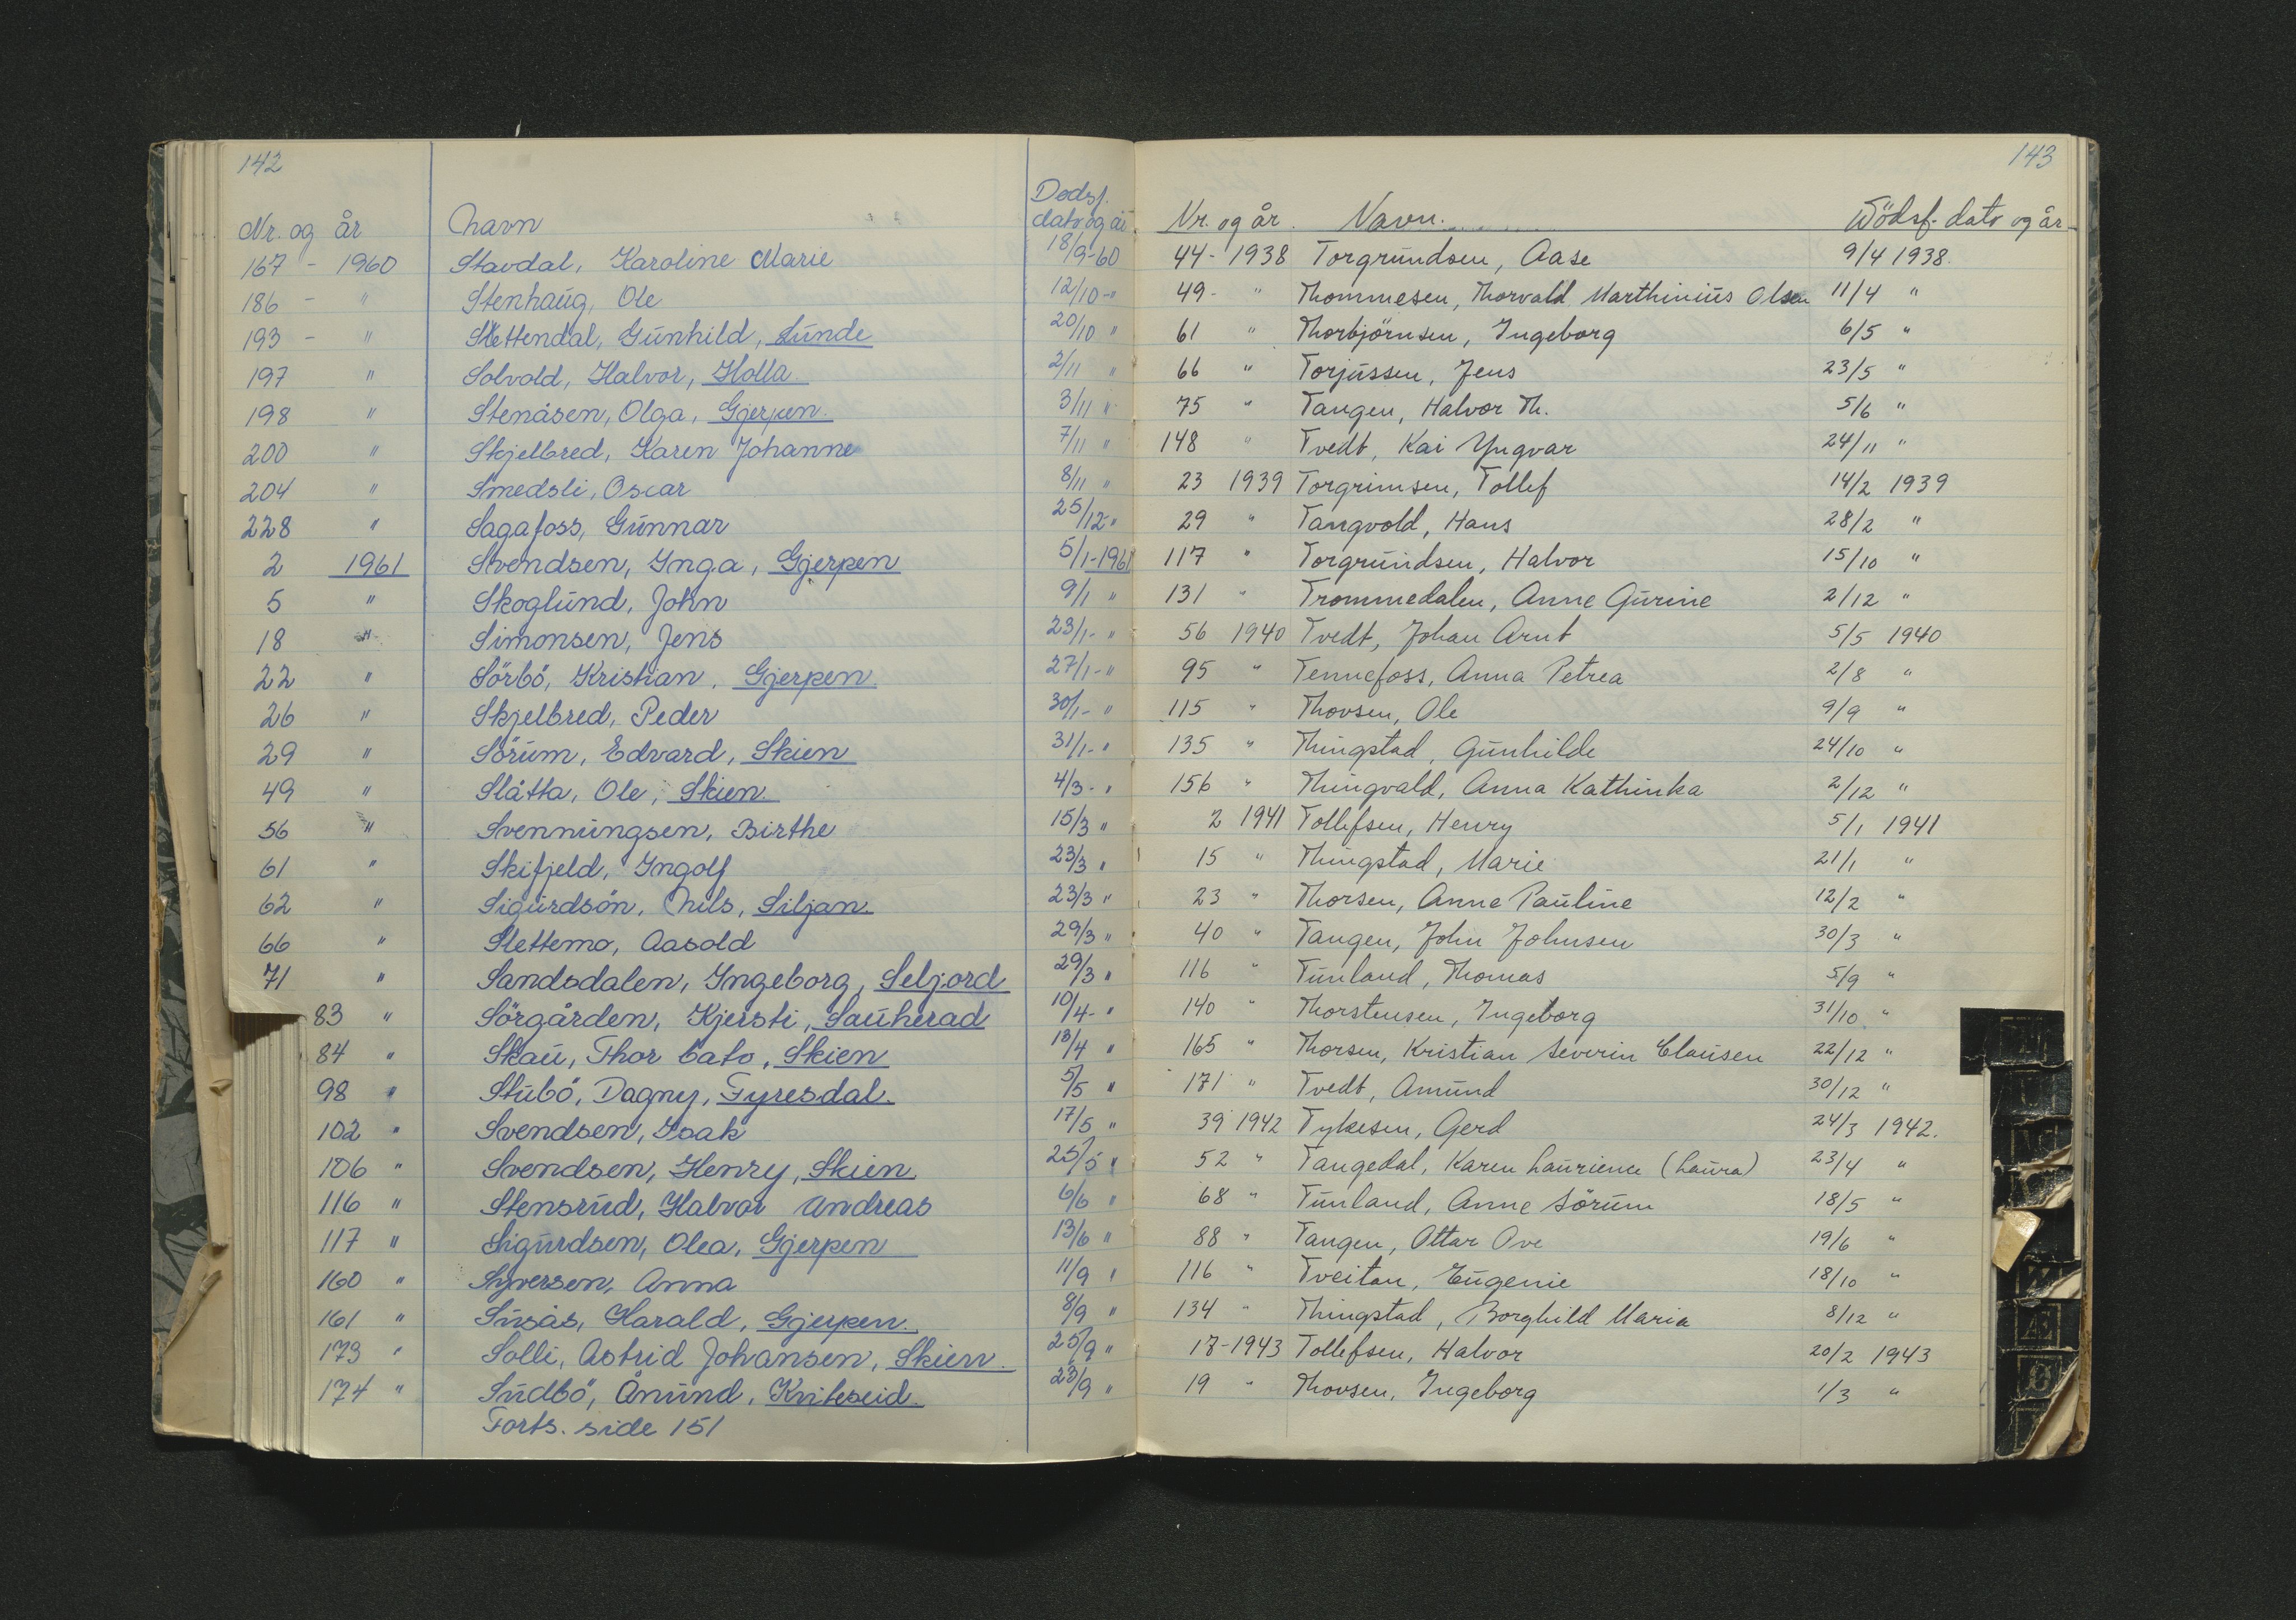 142
Dødsf.
Nr. og år Navn dato og år
167 - 1960 Stavdal, Karoline Marie 18/9-60
186 - " Stenhaug, Ole 12/10-"
193 - " Slettendal, Gunhild, Lunde 20/10 "
197 " Solvold, Halvor, Holla. 2/11 "
198 " Stenåsen, Olga, Gjerpen. 3/11 "
200 " Skjelbred, Karen Johanne 7/11 "
204 " Smedsli, Oscar 8/11 "
228 " Sagafoss, Gunnar 25/12-"
2 1961 Svendsen, Inga, Gjerpen 5/1-1961
5 " Skoglund, John 9/1 "
18 " Simonsen, Jens 23/1- "
22 " Sörbö, Kristian, Gjerpen 27/1-"
26 " Skjelbred, Peder 30/1- "
29 " Sörum, Edvard, Skien 31/1-"
49 " Slåtta, Ole, Skien. 4/3- "
56 " Svennungsen, Birthe 15/3 "
61 " Skifjeld, Ingolf 23/3 "
62 " Sigurdsön, Nils, Siljan. 23/3 "
66 " Slettemo, Aasold 29/3 "
71 " Sandsdalen, Ingeborg, Seljord 29/3 "
83 " Sörgården, Kjersti, Sauherad 10/4- "
84 " Skau, Thor Cato, Skien 18/4 "
98 " Stubö, Dagny, Fyresdal. 5/5 "
102 " Svendsen, Isak 17/5 "
106 " Svendsen, Henry, Skien 25/5 "
116 " Stensrud, Halvor Andreas 6/6 "
117 " Sigurdsen, Olea, Gjerpen 13/6 "
160 " Syversen, Anna 11/9 "
161 " Susås, Harald, Gjerpen. 8/9 "
173 " Solli, Astrid Johansen, Skien. 25/9 "
174 " Sudbö, Ånund, Kviteseid. 23/9 "
Forts. side 151
143
Nr. og år. Navn. Dödsf. dato og år
44- 1938 Torgrundsen, Aase 9/4 1938.
49- " Thommesen, Thorvald Marthinius Olsen 11/4 "
61 " Thorbjörnsen, Ingeborg 6/5 "
66 " Torjussen, Jens 23/5 "
75 " Tangen, Halvor Th. 5/6 "
148 " Tvedt, Kai Yngvar 24/11 "
23 1939 Torgrimsen, Tollef 14/2 1939
29 " Tangvold, Hans 28/2 "
117 " Torgrundsen, Halvor 15/10 "
131 " Trommedalen, Anne Gurine 2/12 "
56 1940 Tvedt, Johan Arnt 5/5 1940
95 " Tennefoss, Anna Petrea 2/8 "
115 " Thovsen, Ole 9/9 "
135 " Thingstad, Gunhilde 24/10 "
156 " Thingvald, Anna Kathinka 2/12 "
2 1941 Tollefsen, Henry 5/1 1941
15 " Thingstad, Marie 21/1 "
23 " Thorsen, Anne Pauline 12/2 "
40 " Tangen, John Johnsen 30/3 "
116 " Tunland, Thomas 5/9 "
140 " Thorstensen, Ingeborg 31/10 "
165 " Thorsen, Kristian Severin Clausen 22/12 "
171 " Tvedt, Amund 30/12 "
39 1942 Tykesen, Gerd 24/3 1942.
52 " Tangedal, Karen Laurience (Laura) 23/4 "
68 " Tunland, Anne Sörum 18/5 "
88 " Tangen, Ottar Ove 19/6 "
116 " Tveitan, Eugenie 18/10 "
134 " Thingstad, Borghild Maria 8/12 "
18-1943 Tollefsen, Halvor 20/2 1943
19 " Thovsen, Ingeborg 1/3 "